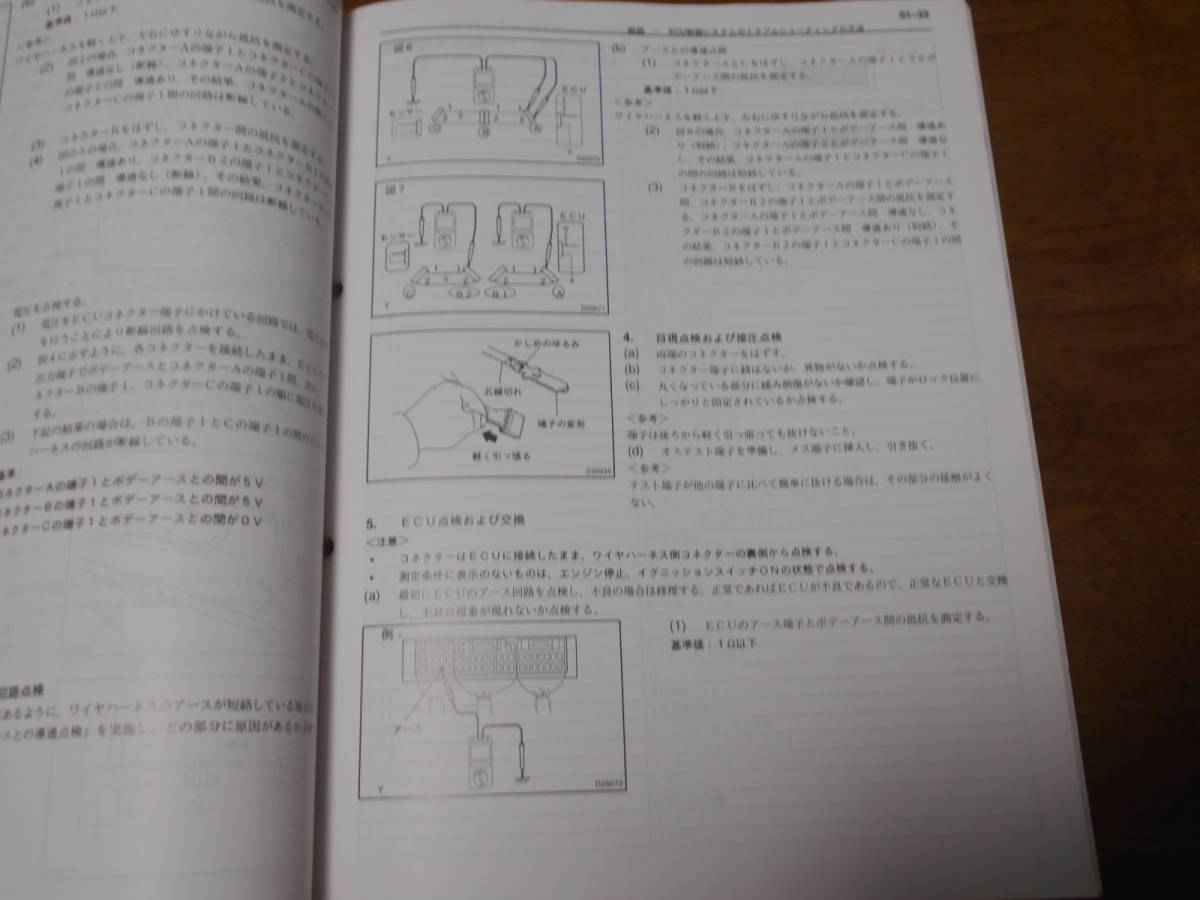 (1)
基準値:1Ω以下
<参考>
ワイヤハーネスを軽く上下、左右にゆすりながら抵抗を測定する。
(2) 図2の場合、コネクターAの端子1とコネクターCの
間 導通なし(断線)、コネクターAの端子2とコネクタ
の端子2の間 導通あり、その結果、コネクターAの端子
コネクターCの端子1間の回路は断線している。
(3) コネクターBをはずし、コネクター間の抵抗を測定する。
(4) 図の3の場合、コネクターAの端子1とコネクターB1の
1の間 導通あり、コネクターB2の端子1とコネクター
端子1の間 導通なし(断線)、その結果、コネクター
端子1とコネクターCの端子1間の回路は断線している。
電圧を点検する。
(1) 電圧をECUコネクター端子にかけている回路では、
を行うことにより断線回路を点検する。
(2) 図4に示すように、各コネクターを接続したまま、ECU
出力端子でボデーアースとコネクターAの端子1間、
ネクターBの端子1、コネクターCの端子1の順に電圧を
する。
(3) 下記の結果の場合は、Bの端子1とCの端子1の間の
ハーネスの回路が断線している。
基準:
コネクターAの端子1とボデーアースとの間が5V
コネクターBの端子1とボデーアースとの間が5V
コネクターCの端子1とボデーアースとの間が0V
回路点検
あるように、ワイヤハーネスのアースが短絡している
スとの導通点検」を実施し、どの部分に原因があるか
01-33
解説 - ECU制御システムのトラブルシューティングの方法
図6
センサー
ECU
C B A
Y
D25070
図7
センサー
ECU
C B2 B1 A
Y
D25071
(b) アースとの導通点検
(1) コネクターAとCをはずし、コネクターAの端子1と2とボ
デーアース間の抵抗を測定する。
基準値:1Ω以下
<参考>
ワイヤハーネスを軽く上下、左右にゆすりながら抵抗を測定する。
(2) 図6の場合、コネクターAの端子1とボデーアース間 導通あ
り(短絡)、コネクターAの端子2とボデーアース間 導通な
し、その結果、コネクターAの端子1とコネクターCの端子1
の間の回路は短絡している。
(3) コネクターBをはずし、コネクターAの端子1とボデーアース
間、コネクターB2の端子1とボデーアース間の抵抗を測定す
る。コネクターAの端子1とボデーアース間 導通なし、コネ
クターB2の端子1とボデーアース間 導通あり(短絡)、そ
の結果、コネクターB2の端子1とコネクターCの端子1の間
の回路は短絡している。
かしめのゆるみ
芯線切れ
端子の変形
軽く引っ張る
D25035
4. 目視点検および接圧点検
(a) 両端のコネクターをはずす。
(b) コネクター端子に錆はないか、異物がないか点検する。
(c) 丸くなっている部分に緩み損傷がないか確認し、端子がロック位置に
しっかりと固定されているか点検する。
<参考>
端子は後ろから軽く引っ張っても抜けないこと。
(d) オステスト端子を準備し、メス端子に挿入し、引き抜く。
<参考>
テスト端子が他の端子に比べて簡単に抜ける場合は、その部分の接触がよく
ない。
5. ECU点検および交換
<注意>
• コネクターはECUに接続したまま、ワイヤハーネス側コネクターの裏側から点検する。
• 測定条件に表示のないものは、エンジン停止、イグニッションスイッチONの状態で点検する。
(a) 最初にECUのアース回路を点検し、不良の場合は修理する。正常であればECUが不良であるので、正常なECUと交換
し、不具合現象が現れないか点検する。
例:
アース
Y
D25072
(1) ECUのアース端子とボデーアース間の抵抗を測定する。
基準値:1Ω以下